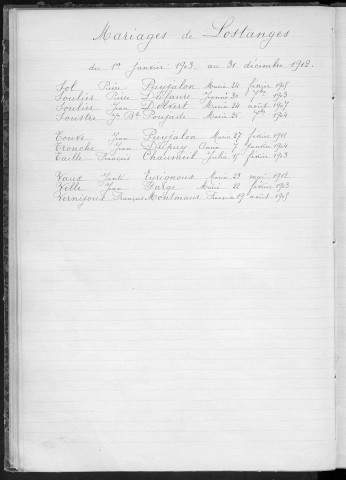 Mariages de Lostanges
du 1er Janvier 1903 au 31 décembre 1912.
Sol Pierre Puyjalon Marie 24 février 1905
Soulier Pierre Delfaure Jeanne 30 1903
Soulier Jean Delbert Marie 24 août 1907
Soustre Jn Bte Poujade Maria 25 1904
Couve Jean Puyjalon Maria 27 février 1911
Tronche Jean Dupuy Anna 7 Janvier 1904
Taille François Chaumeil Julie 15 février 1903
Vaux Eyrignoux Maria 23 mai 1912
Ville Jean Farge Marie 22 février 1903
Vernéjoux François Montmaur 19 août 1905